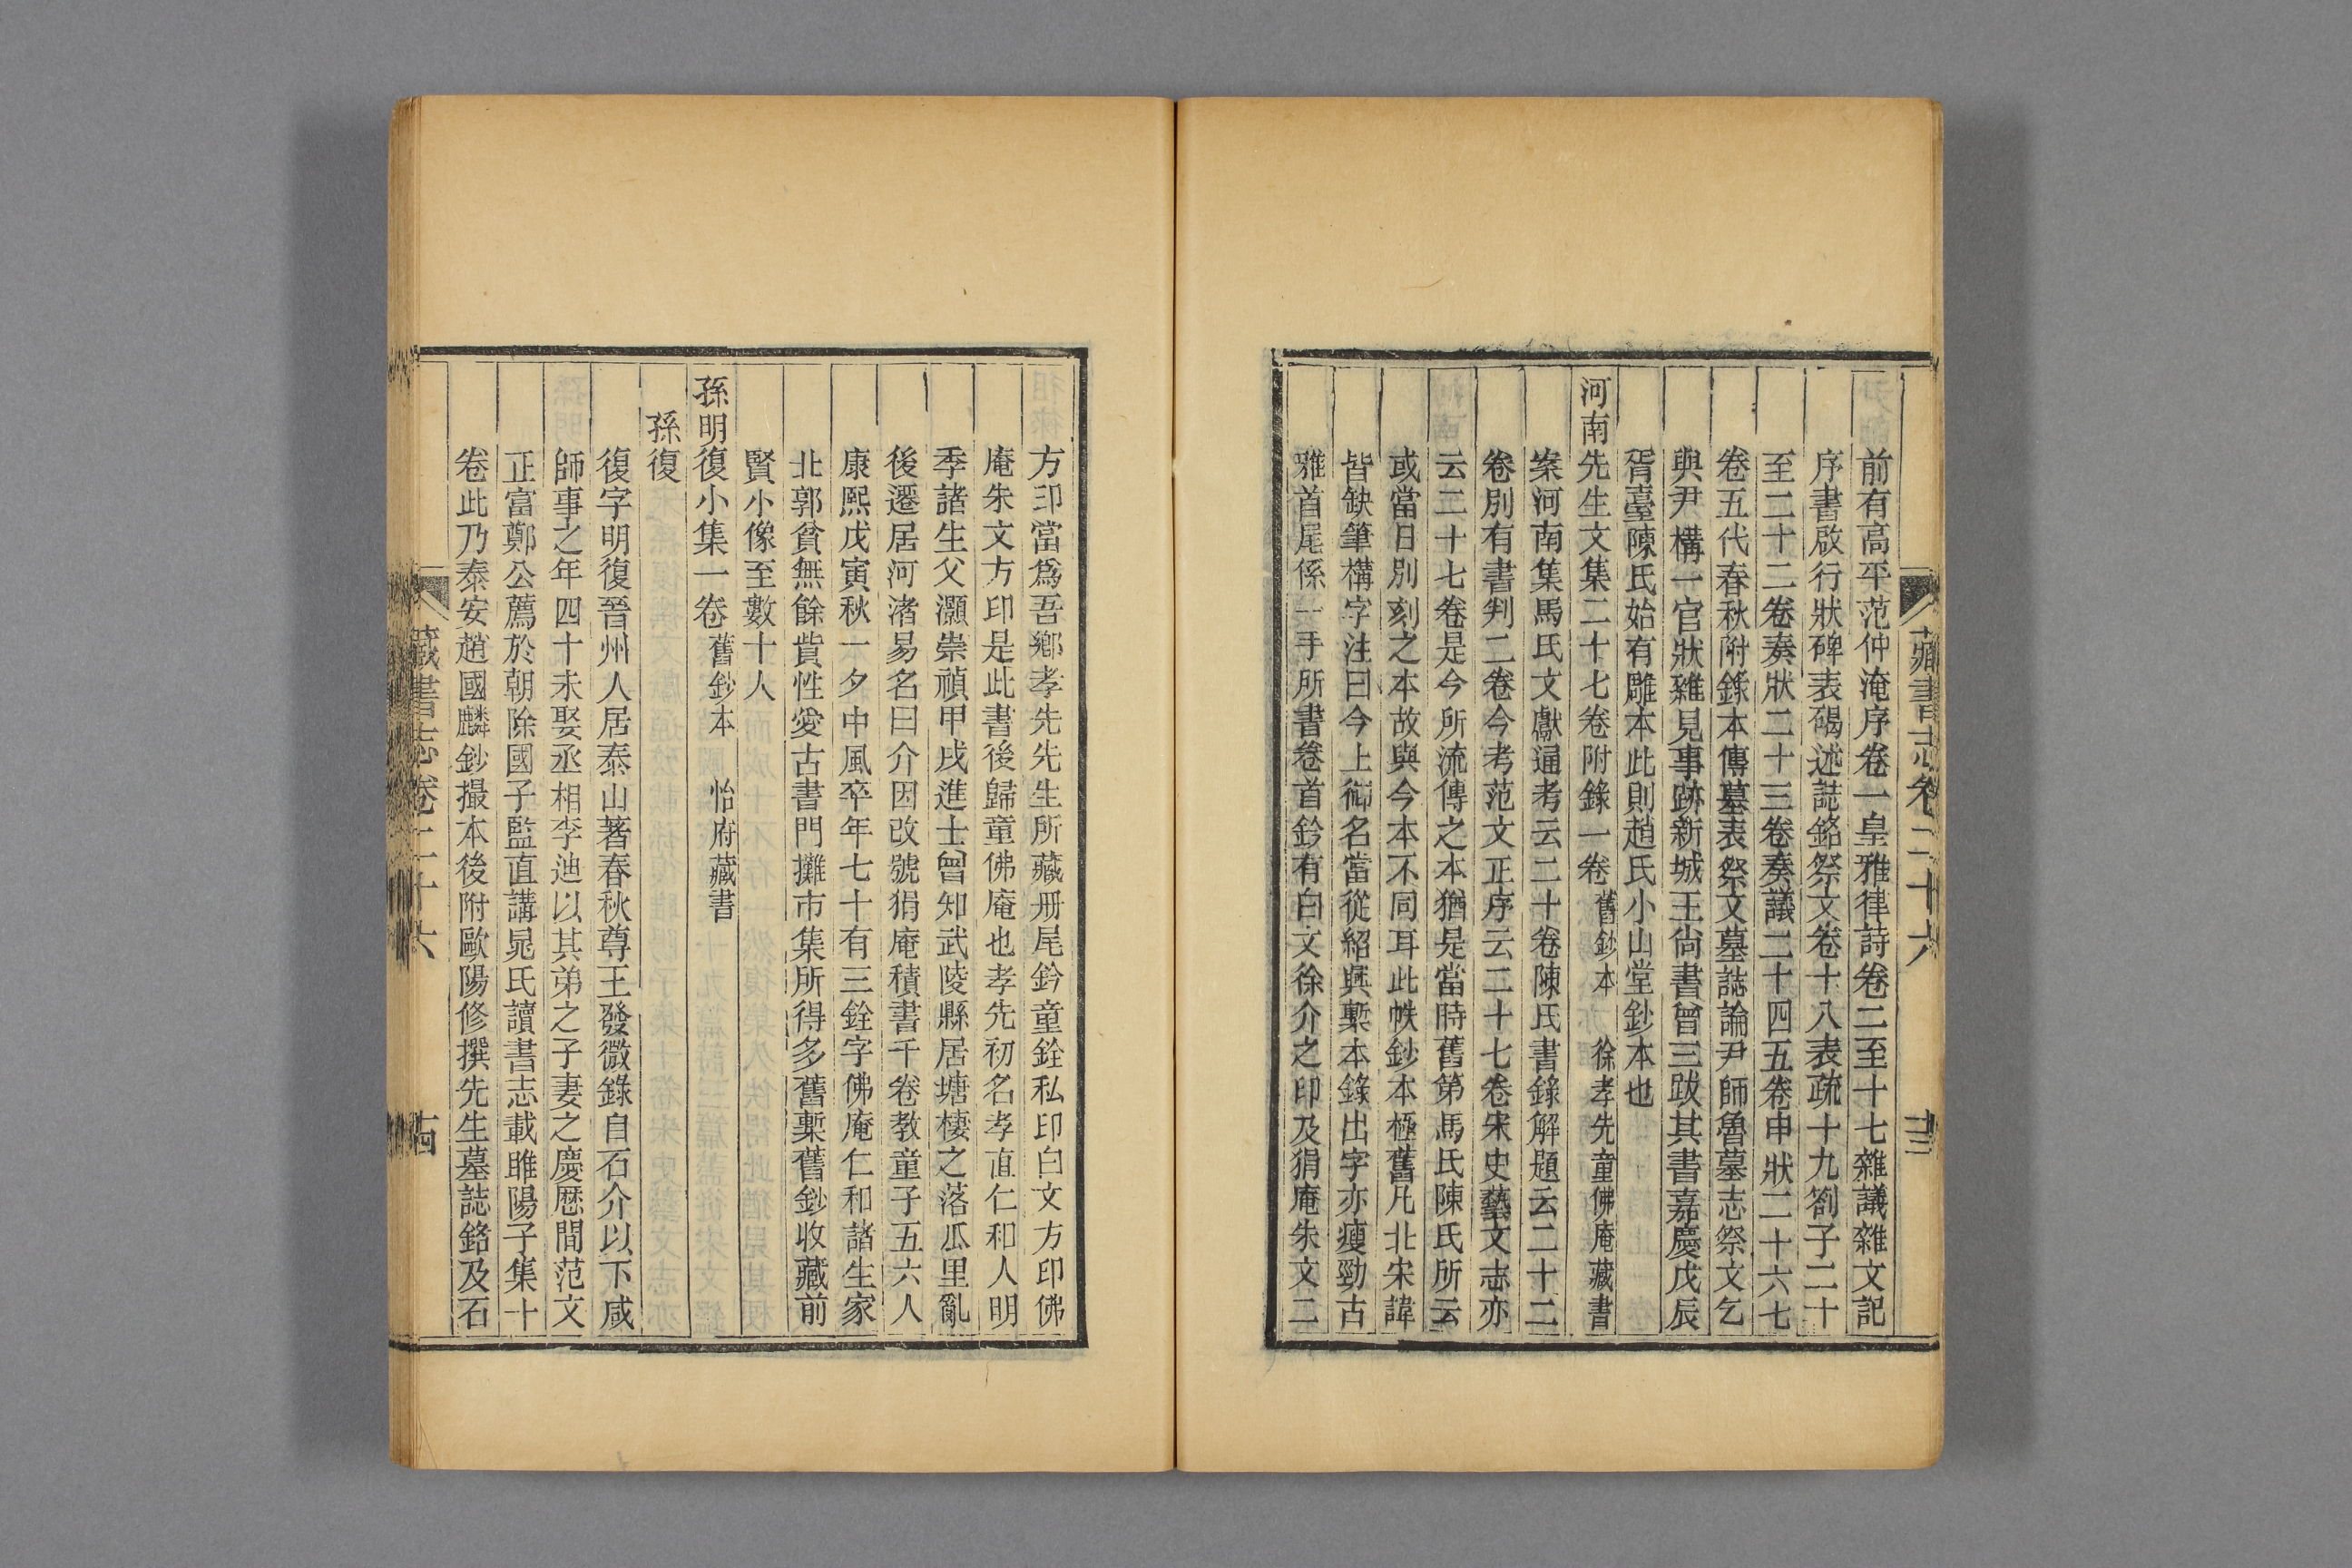 藏書志卷二十六 十三
前有高平范仲淹序卷一皇雅律詩卷二至十七雜議雜文記
序書啟行狀碑表碣述誌銘祭文卷十八表疏十九劄子二十
至二十二卷奏狀二十三卷奏議二十四五卷申狀二十六七
卷五代春秋附錄本傳墓表祭文墓誌論尹師魯墓志祭文乞
與尹構一官狀雜見事跡新城王尙書曾三跋其書嘉慶戊辰
胥臺陳氏始有雕本此則趙氏小山堂鈔本也
河南先生文集二十七卷附錄一卷 舊鈔本 徐孝先童佛庵藏書
案河南集馬氏文獻通考云二十卷陳氏書錄解題云二十二
卷別有書判二卷今考范文正序云二十七卷宋史藝文志亦
云二十七卷是今所流傳之本猶是當時舊第馬氏陳氏所云
或當日別刻之本故與今本不同耳此帙鈔本極舊凡北宋諱
皆缺筆構字注曰今上御名當從紹興槧本錄出字亦瘦勁古
雅首尾係一手所書卷首鈐有白文徐介之印及狷庵朱文二
方印當爲吾鄉孝先先生所藏册尾鈐童銓私印白文方印佛
庵朱文方印是此書後歸童佛庵也孝先初名孝直仁和人明
季諸生父灝崇禎甲戌進士曾知武陵縣居塘棲之落瓜里亂
後遷居河渚易名曰介因改號狷庵積書千卷教童子五六人
康熙戊寅秋一夕中風卒年七十有三銓字佛庵仁和諸生家
北郭貧無餘貲性愛古書門攤市集所得多舊槧舊鈔收藏前
賢小像至數十人
孫明復小集一卷 舊鈔本 怡府藏書
孫復
復字明復晉州人居泰山著春秋尊王發微錄自石介以下咸
師事之年四十未娶丞相李迪以其弟之子妻之慶厯間范文
正富鄭公薦於朝除國子監直講晁氏讀書志載睢陽子集十
卷此乃泰安趙國麟鈔撮本後附歐陽修撰先生墓誌銘及石
藏書志卷二十六 十四